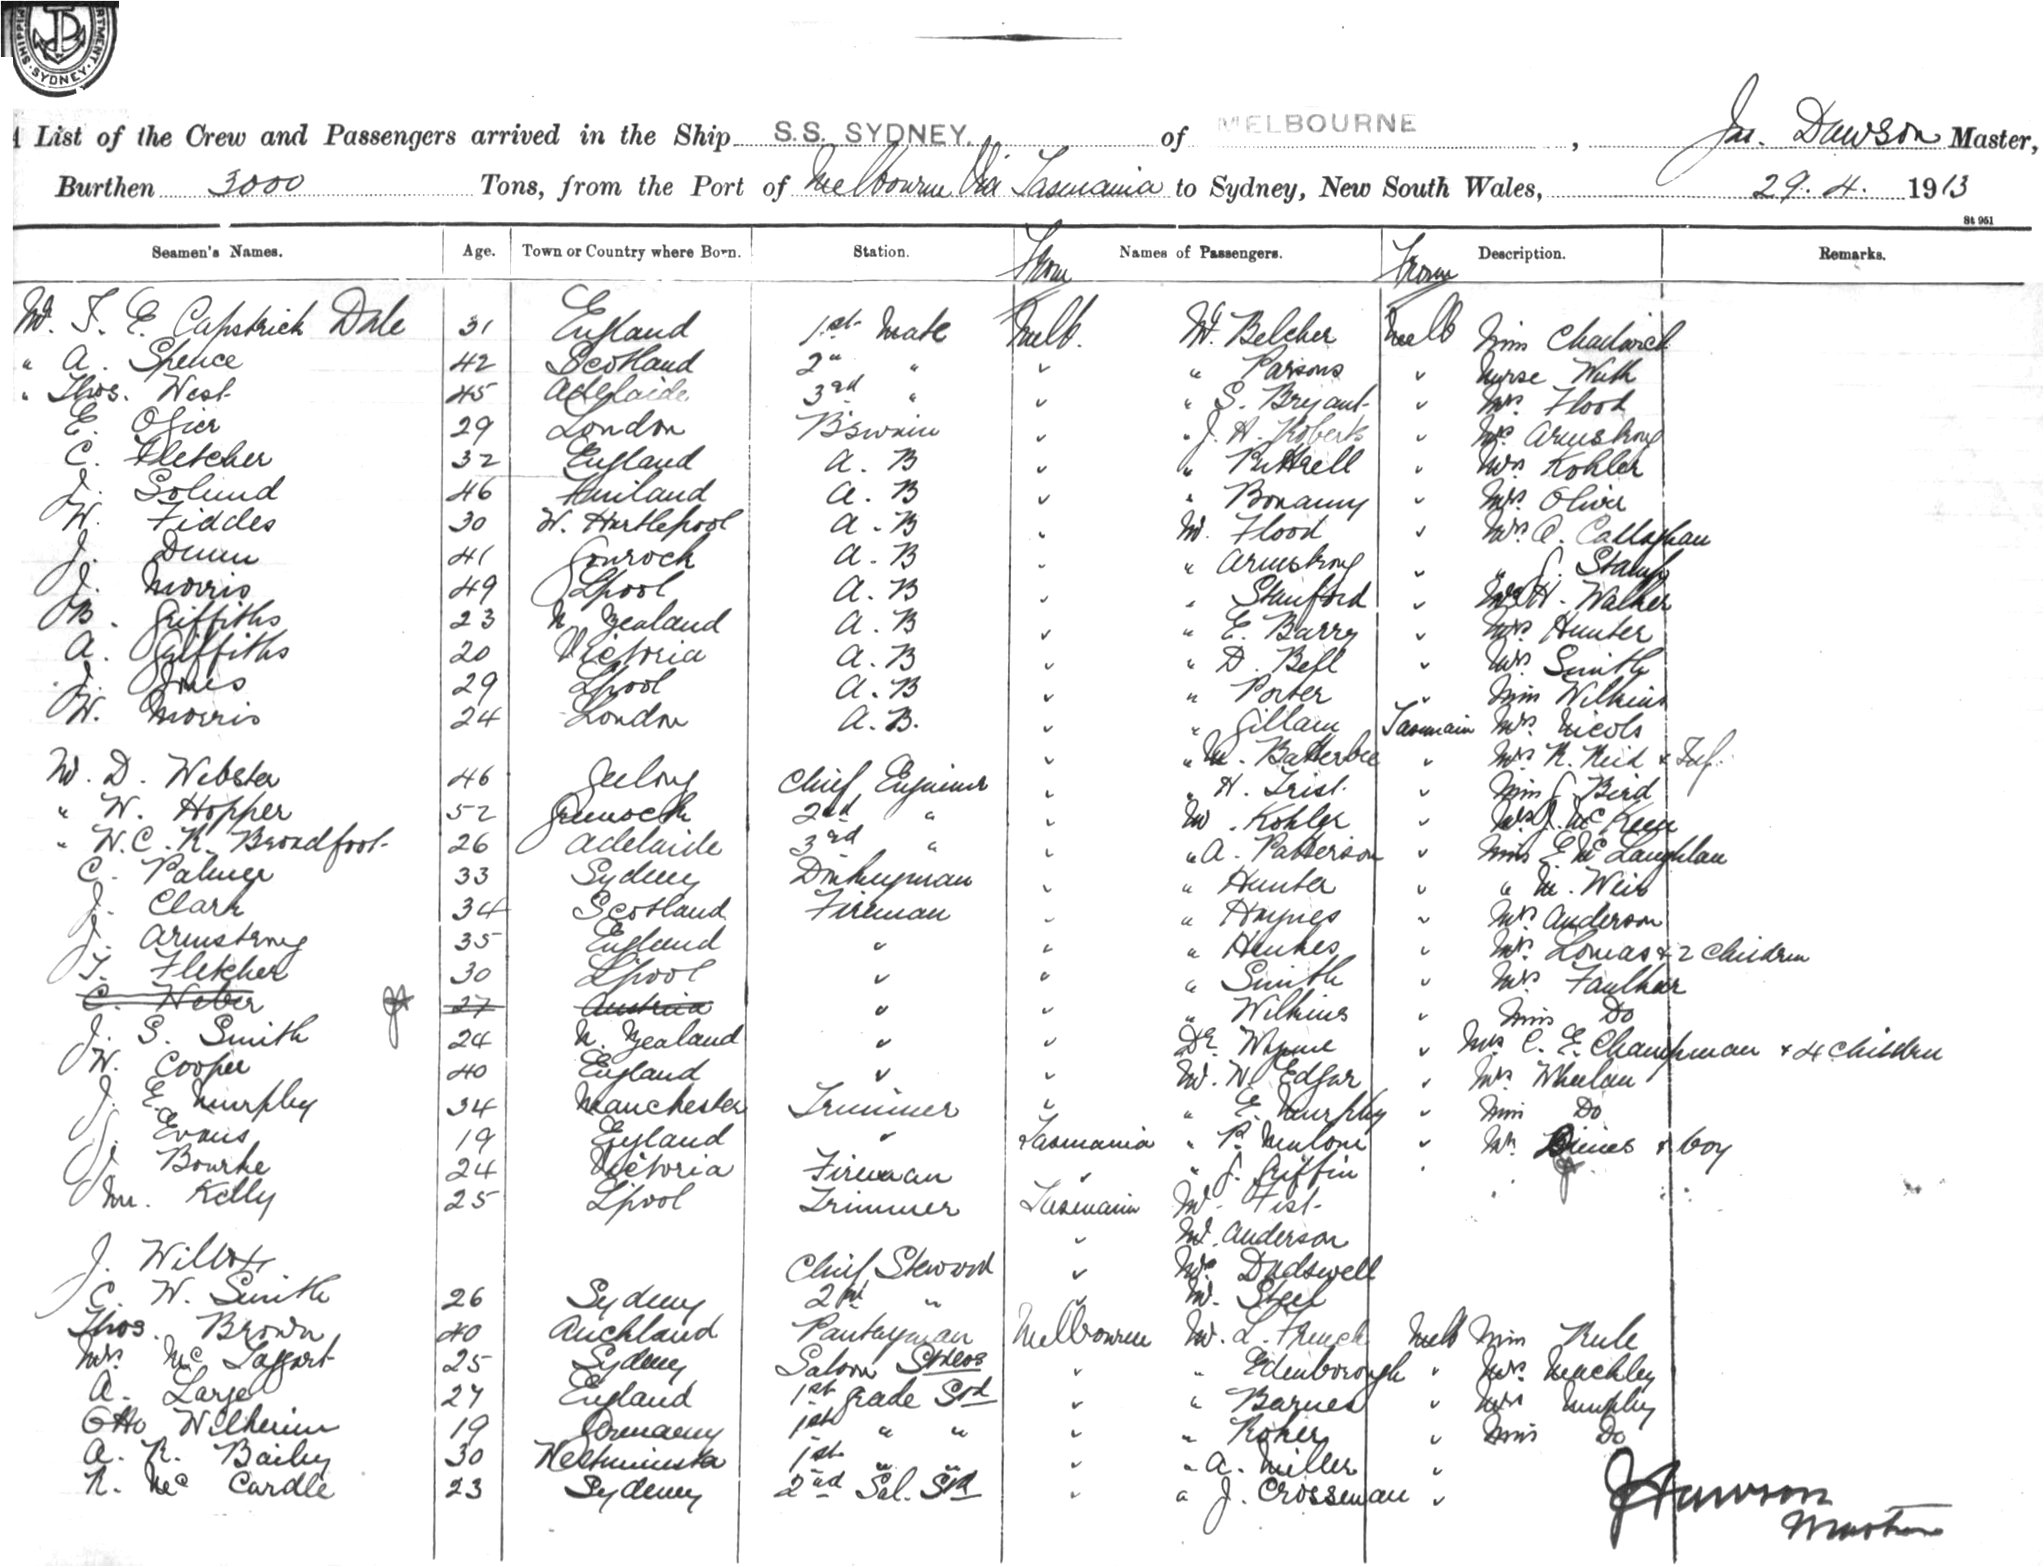 SHIPPING DEPARTMENT SYDNEY
A List of the Crew and Passengers arrived in the Ship S.S. SYDNEY. of MELBOURNE, Jas. Dawson Master,
Burthen 3000 Tons, from the Port of Melbourne Via Tasmania to Sydney, New South Wales, 29.4. 1913
St 961
Seamen's Names. Age. Town or Country where Born. Station. From Names of Passengers. From Description. Remarks.
Mr. T. E. Capstrick Dale 31 England 1st Mate Melb. Mr. Belcher Melb Miss Chadwick
" A. Spence 42 Scotland 2nd " " " Parsons " Nurse Wuth
" Thos. West 45 Adelaide 3rd " " " S. Bryant " Mrs. Flood
E. Ofier 29 London B'swain " " J. H. Roberts " Mrs Armstrong
C. Fletcher 32 England A. B " " Puttrell " Mrs Kohler
J. Solund 46 Finland A. B " " Bonamy " Mrs Oliver
W. Fiddes 30 W. Hartlepool A. B " M. Flood " Mrs. C. Callaghan
J. Dunn 41 Gourock A. B " " Armstrong " " J. Stamp
J. Morris 49 L'pool A. B " " Stanford " Mrs H. Walker
B. Griffiths 23 N. Zealand A. B " " E. Barry " Mrs Hunter
A. Griffiths 20 Victoria A. B " " D. Bell " Mrs Smith
J. Jones 29 L'pool A. B " " Porter " Miss Wilkins
W. Morris 24 London A. B. " " Gillam Tasmain Mrs. Nicols
" " M. Batterbee " Mrs R. Reid & Inf.
M. D. Webster 46 Geelong Chief Engineer " " H. Trist " Miss J. Bird
" W. Hopper 52 Greenock 2nd " " M. Kohler " Mrs J. McKeen
" W. C. R. Broadfoot 26 Adelaide 3rd " " " A. Patterson " Miss E. McLaughlan
C. Palmer 33 Sydney Donkeyman " " Hunter " " M. Weir
J. Clark 34 Scotland Fireman " " Haynes " Mrs Anderson
J. Armstrong 35 England " " " Henkes " Mrs. Lomas & 2 Children
T. Fletcher 30 L'pool " " " Smith " Mrs. Faulkner
C. Heber 27 Austria " " " Wilkins " Miss Do
J. S. Smith 24 N. Zealand " " Dr. Whyne " Mrs C. E. Champman & 4 Children
W. Cooper 40 England " " M. W Edgar " Mrs Wheelan
J. E. Murphy 34 Manchester Trimmer " " E. Murphy " Miss Do
J. Evans 19 England " Tasmania " P. Malone " Mrs Bines & boy
J. Bourke 24 Victoria Fireman " " J. Griffin
M. Kelly 25 L'pool Trimmer Tasmain M. Fist
" Mr. Anderson
J. Willox Chief Steward " Mrs Dadswell
C. W. Smith 26 Sydney 2nd " " M. Steel
Thos. Brown 40 Auckland Pantryman Melbourne M. L. French Melb Miss Rule
Mrs. McTaggart 25 Sydney Saloon Stdess " " Edenborough " Mrs. Meachley
A. Large 27 England 1st grade Std " " Barnes " Mrs Murphy
Otto Wilhelm 19 Germany 1st " " " " Roker " Miss Do
A. R. Bailey 30 Westminster 1st " " " " A. Miller "
R. McCardle 23 Sydney 2nd Sal. Std " " J. Crosseman "
J Dawson
Master